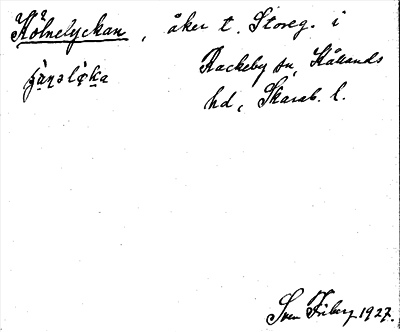 Kölnelyckan, åker t. Storeg. i
Rackeby sn, Kållands
hd, Skarab. l.
Sven Friberg 1927.